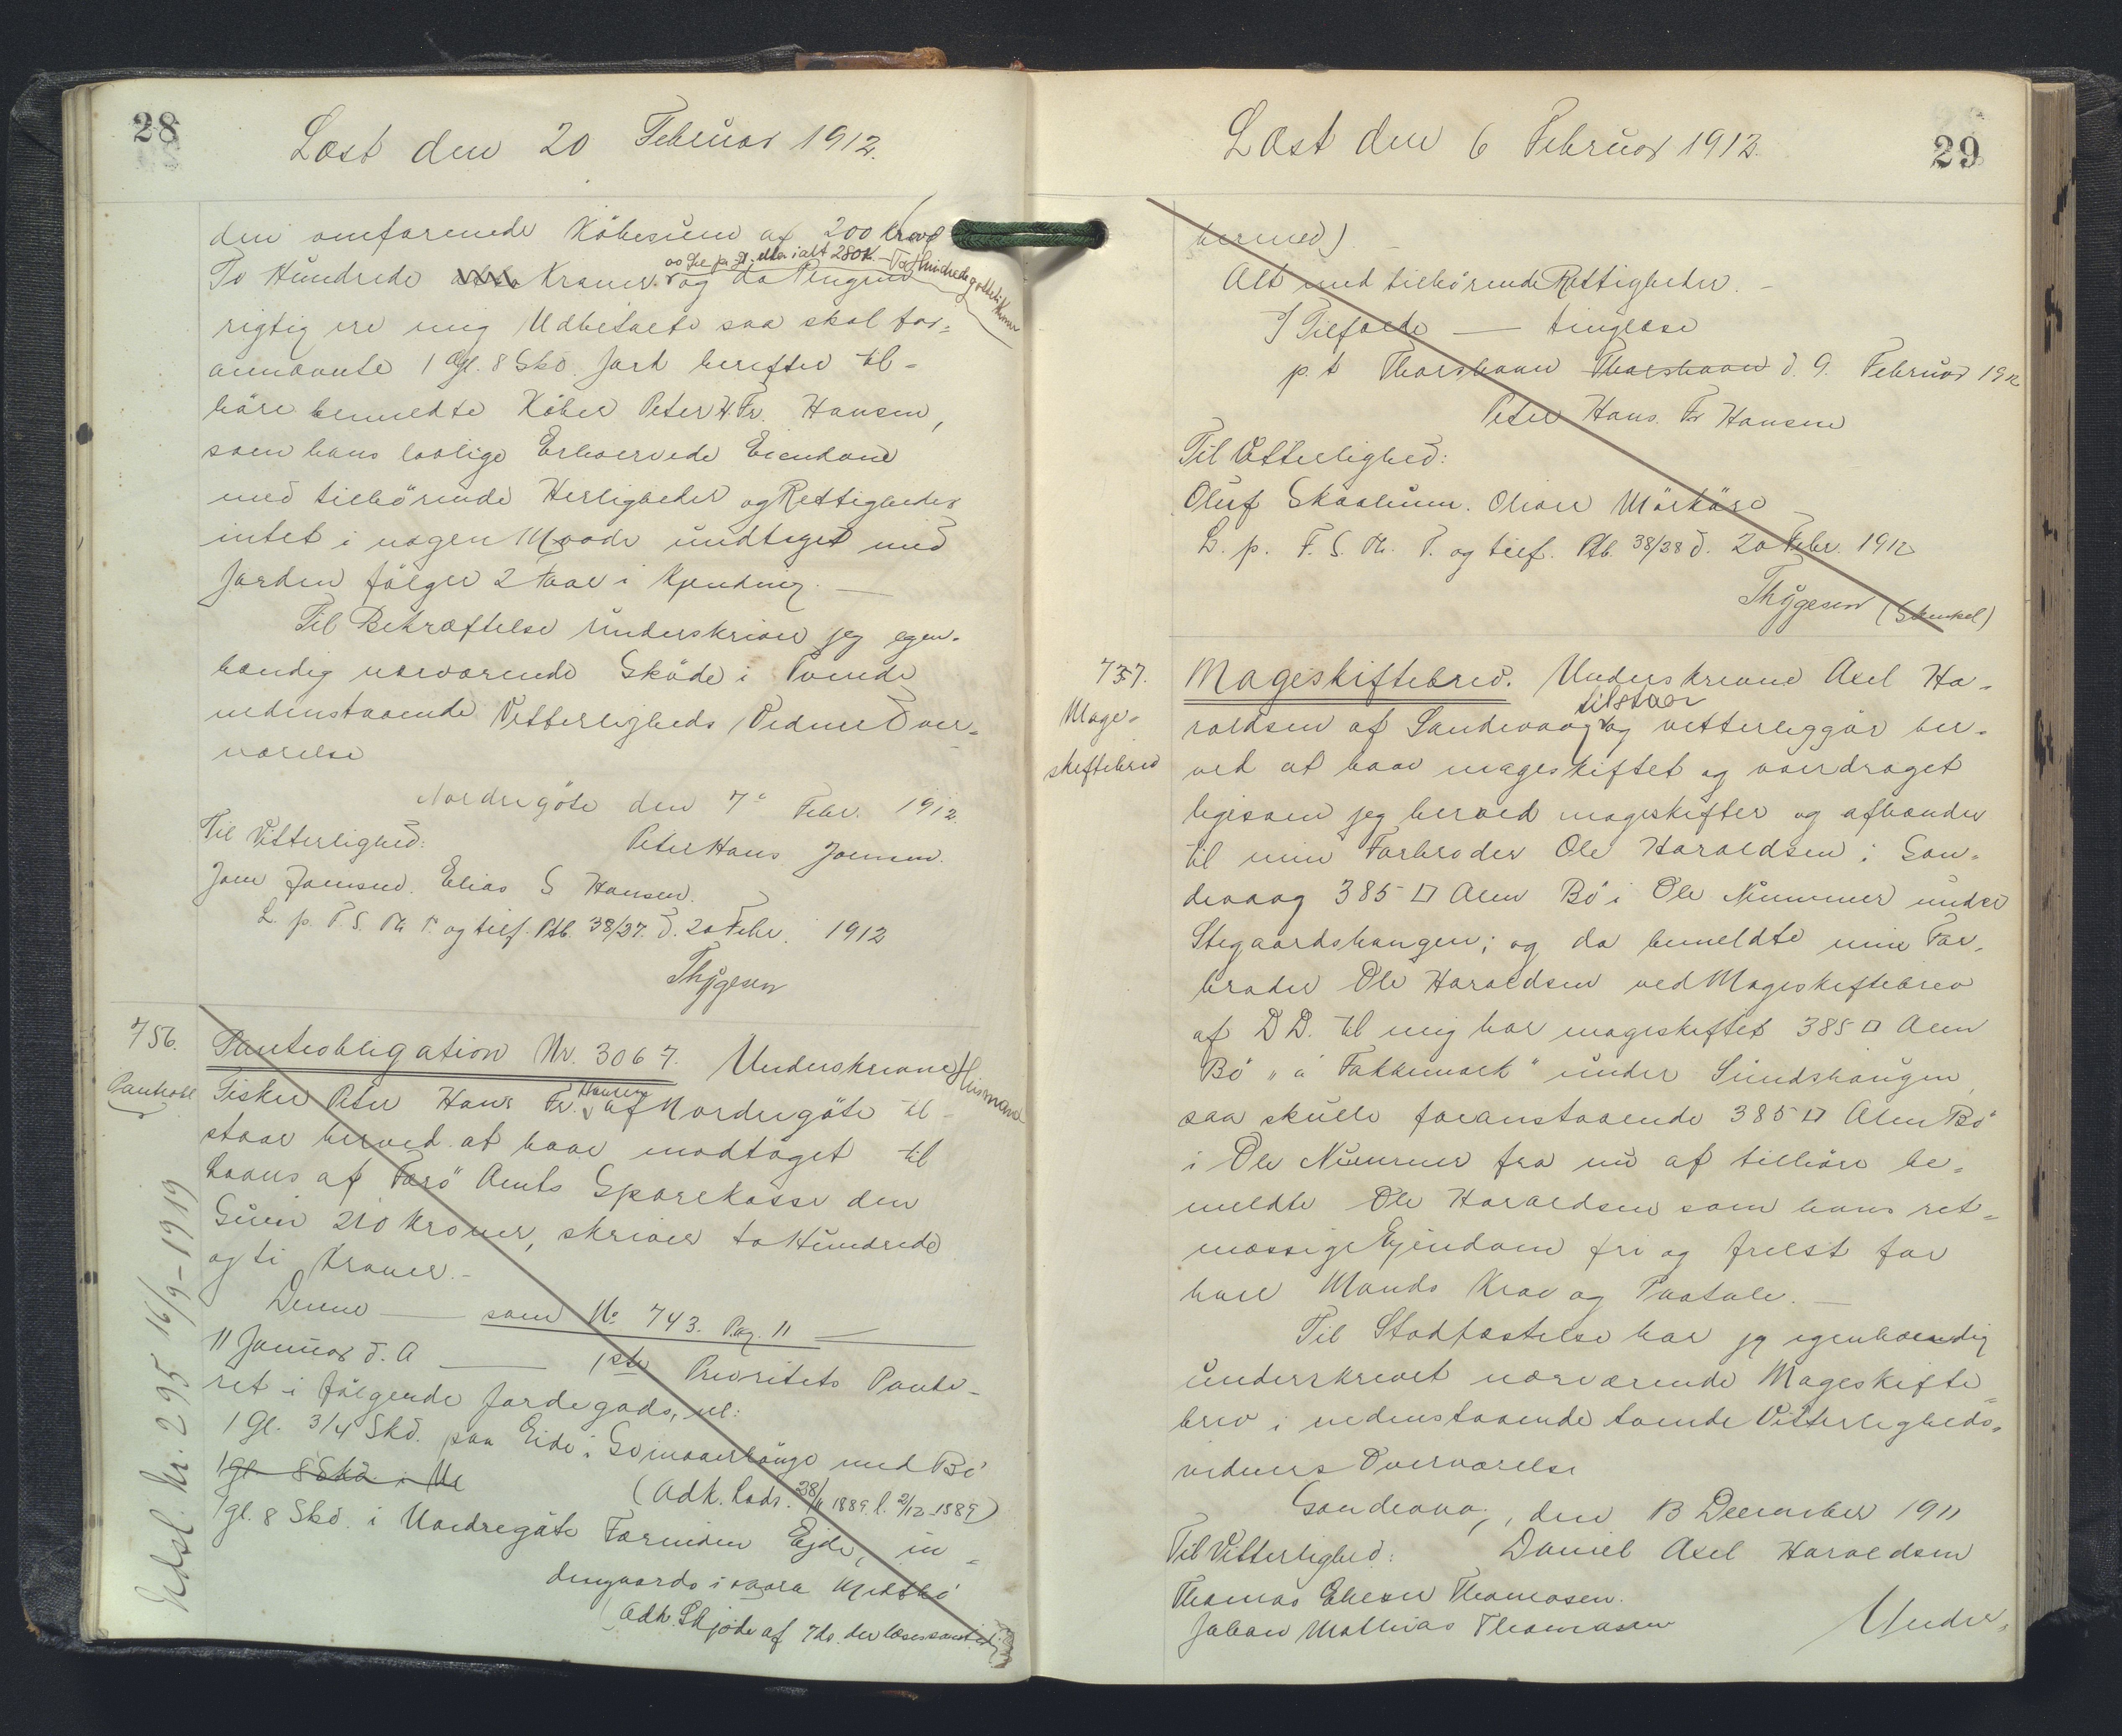 28
Læst den 20 Februar 1912.
den omforenede Köbesum af 200 Kr
pr. Gl. eller ialt 280 K. To Hundrede og otteti Kroner
To Hundrede Kroner og da Pengene
rigtig ere mig Udbetalte saa skal for-
annævnte 1 Gl. 8 Skd. Jord herefter til-
höre bemeldte Köber Peter H. Fr. Hansen,
som hans lovlige Erhvervede Eiendom
med tilhörende Herligheder og Rettigheder
intet i nogen Maade undtaget med
Jorden fölger 2 Faar i Kjendning. —
Til Bekræftelse underskriver jeg egen-
hændig nærværende Sköde i Tvende
nedenstaaende Vitterligheds Vidners Over-
værelse
Nordregöte den 7de Febr. 1912.
Til Vitterlighed: Peter Hans Joensen.
Joen Joensen. Elias S Hansen.
L. p. F. S. Th. T. og tilf. Ptb. 38/27. d. 20 Febr. 1912
Thygesen
756.
Panteobl
Panteobligation Nr. 3067. Underskrevne Husmand
Fisker Peter Hans Fr. Hansen af Nordregöte til-
staar herved at have modtaget til
Laans af Færö Amts Sparekasse den
Sum 210 Kroner, skriver to Hundrede
og ti Kroner. -
Denne — som No 743. Pag. 11 —
11 Januar d. A — 1ste Prioritets Pante-
ret i fölgende Jordegods, nl:
1 Gl. 3/4 Skd. paa Eide i Svinaaerhauge med Bö
1 gl. 8 Skd. i Ne
(Adk. Lods. 28/11 1889 l. 2/12 1889)
1 gl. 8 Skd. i Nordregöte Færinden Ejde, in-
dengaards i vaara Midtbö
(Adk. Skjöde af 7ds. der læses samtidig
Udsl. Nr. 295 16/9-1919
29
Læst den 6 Februar 1912.
hermed)
Alt med tilhörende Rettigheder. -
I Tilfælde — tinglæse
p. t Thorshavn Thorshavn d. 9. Februar 1912
Peter Hans. Fr Hansen
Til Vitterlighed:
Oluf Skaalum. Oliver Mörköre
L. p. F. S. Th. T. og tilf. Ptb. 38/28 d. 20 Febr. 1912
Thygesen (Stenkel)
757.
Mage-
skiftebrev
Mageskiftebrev. Underskrevne Axel Ha-
raldsen af Sandevaag tilstaar og vitterliggör her-
ved at have mageskiftet og overdraget
ligesom jeg herved mageskifter og afhænder
til min Farbroder Ole Haraldsen i San-
devaag 385 □ Alen Bö i Ole Nummer under
Stegaardshaugen; og da bemeldte min Far-
broder Ole Haraldsen ved Mageskiftebrev
af D D. til mig har mageskiftet 385 □ Alen
Bö „á Fakkemark" under Sundshaugen,
saa skulle foranstaaende 385 □ Alen Bö
i Ole Nummer fra nu af tilhöre be-
meldte Ole Haraldsen som hans ret-
mæssige Ejendom fri og frelst for
hver Mands Krav og Paatale. —
Til Stadfæstelse har jeg egenhændig
underskrevet nærværende Mageskifte-
brev i nedenstaaende tvende Vitterligheds-
vidners Overværelse
Sandevaag, den 13 December 1911
Til Vitterlighed: Daniel Axel Haraldsen
Thomas Thomasen.
Johan Mathias Thomasen
Under-